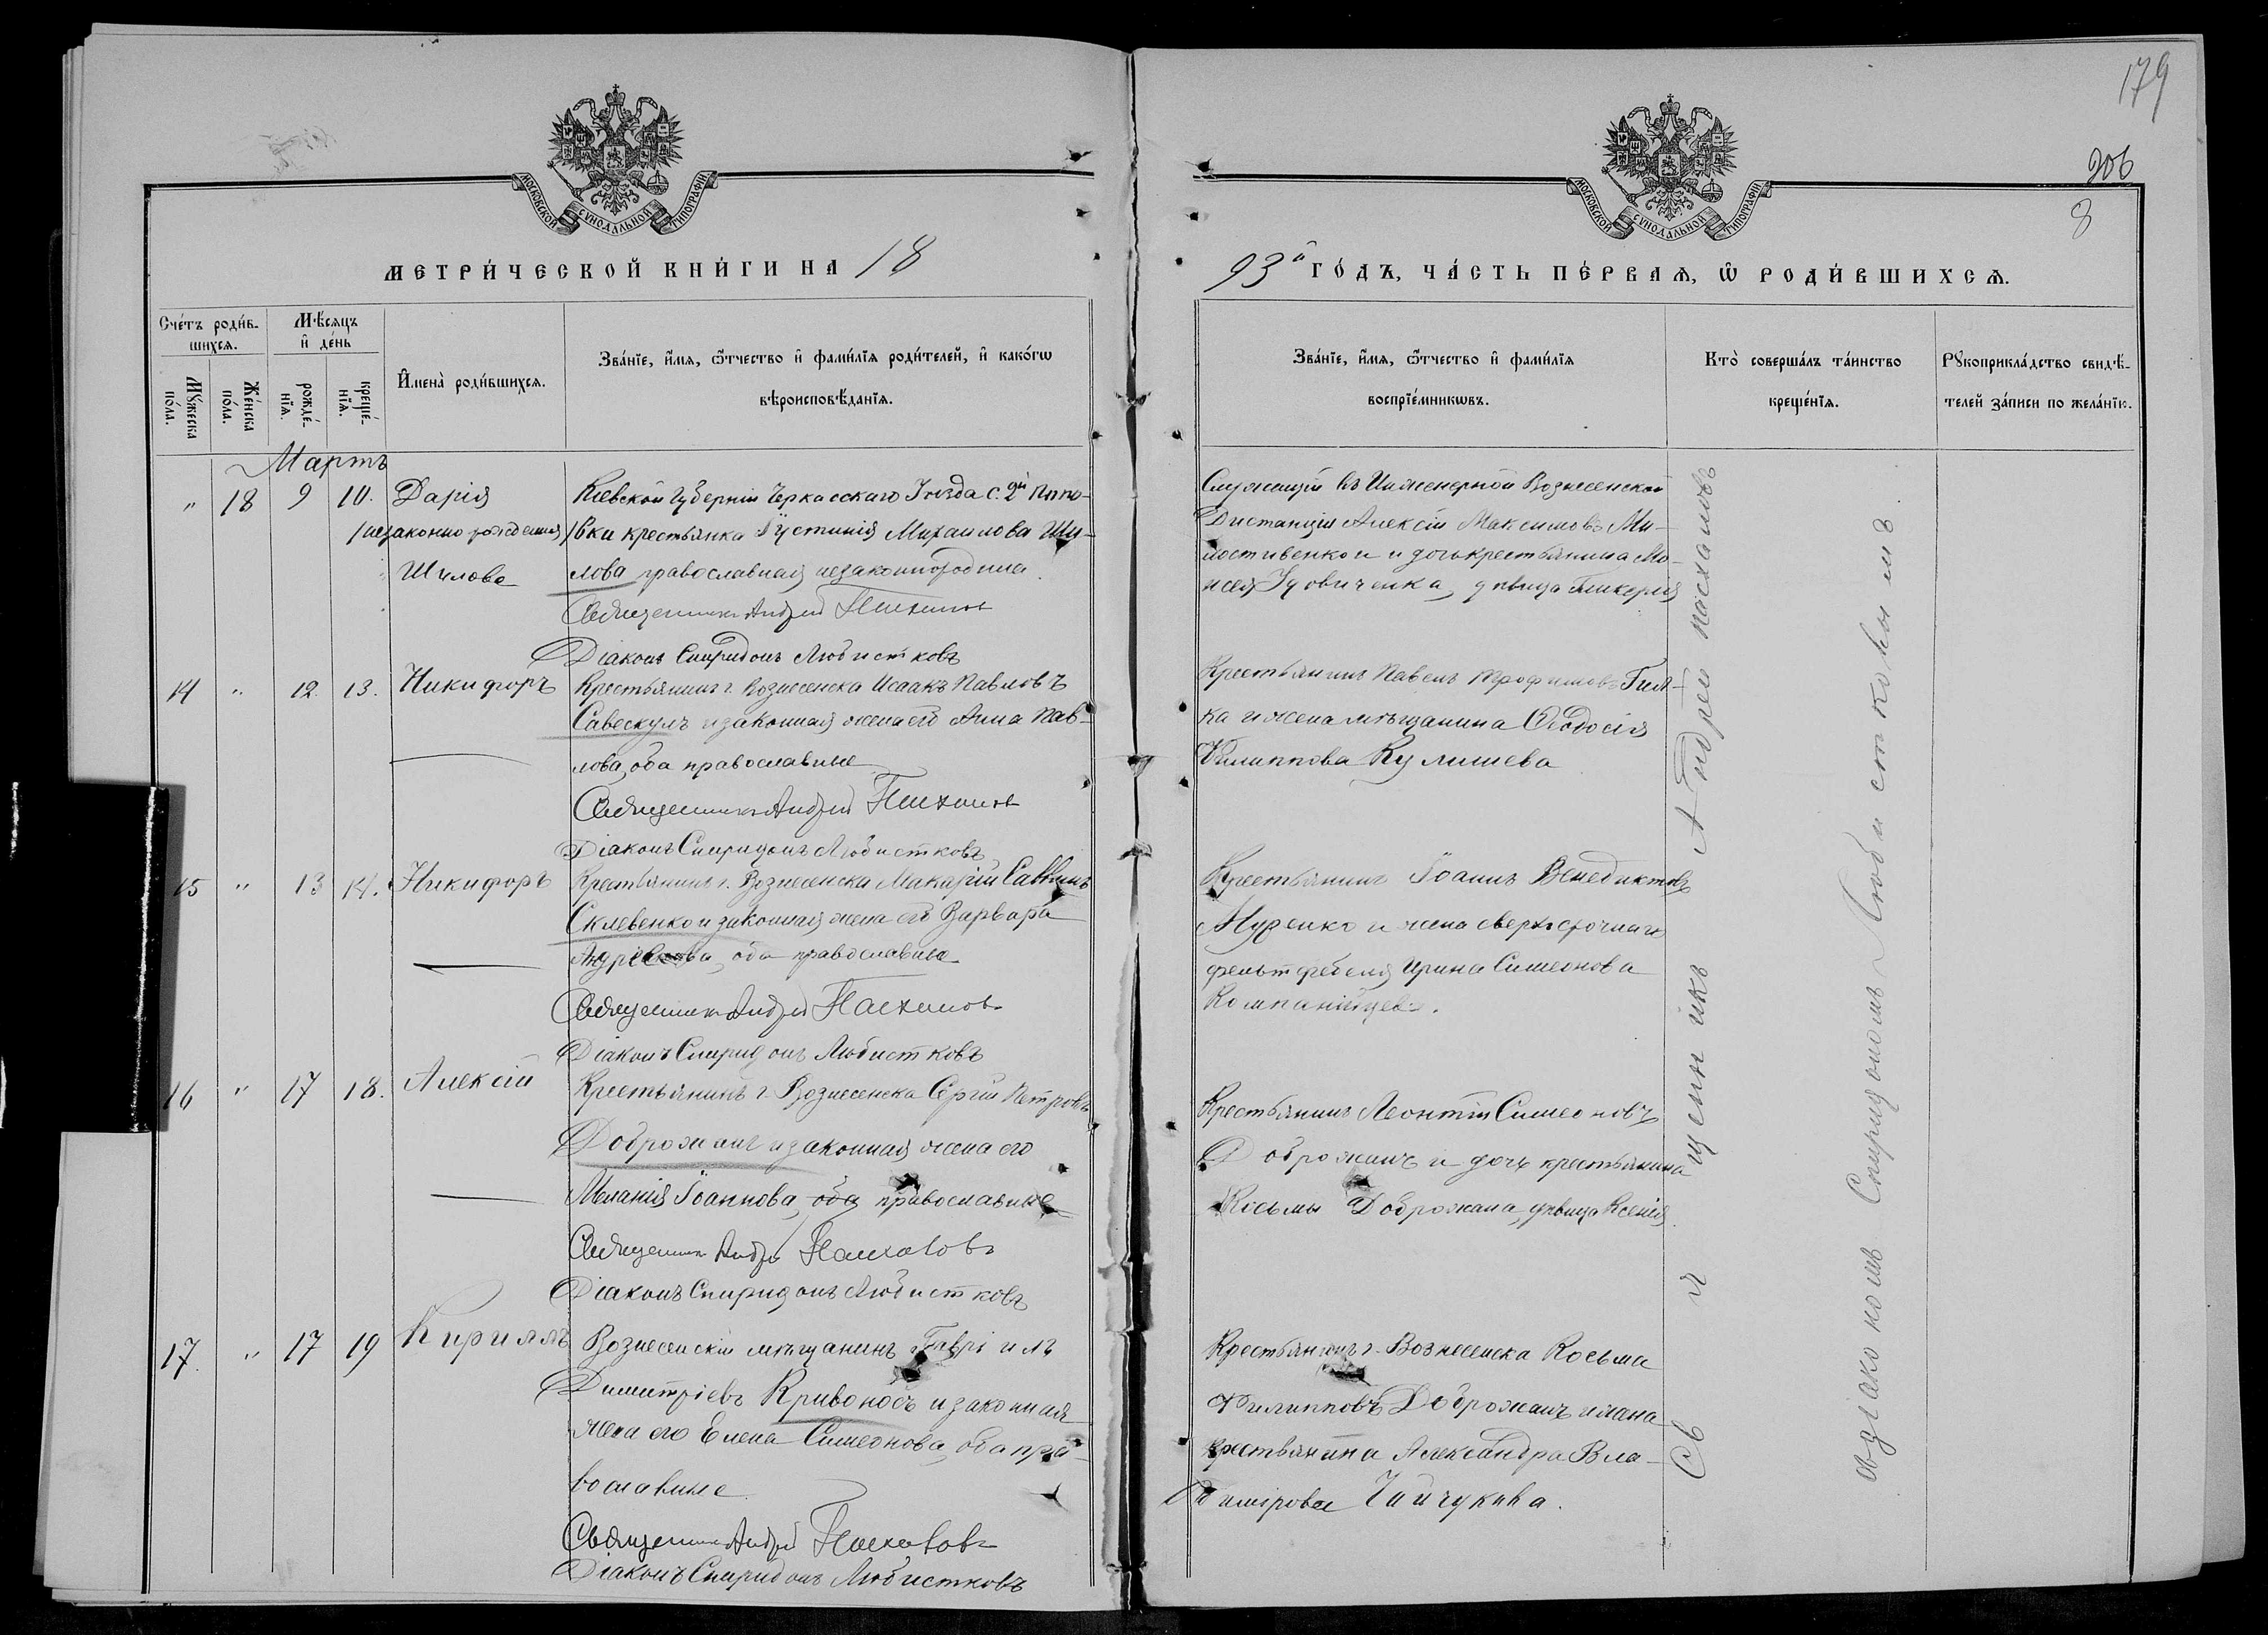 179
206
8
МОСКОВСКОЙ СУНОДАЛЬНОЙ ТИПОГРАФІИ
МОСКОВСКОЙ СУНОДАЛЬНОЙ ТИПОГРАФІИ
МЕТРИ́ЧЕСКОЙ КНИ́ГИ НА 18
93й ГО́ДЪ, ЧА́СТЬ ПЕ́РВАѦ, Ѡ РОДИ́ВШИХСѦ.
Сче́тъ роди́вшихсѧ.
Мꙋ́жеска по́ла.
Же́нска по́ла.
Мѣ́сѧцъ и де́нь
рожде́нїѧ.
креще́нїѧ.
И҆мена̀ роди́вшихсѧ.
Зва́нїе, и҆́мѧ, ѻ҆́тчество и҆ фами́лїѧ роди́телей, и҆ како́гѡ вѣроисповѣ́данїѧ.
Зва́нїе, и҆́мѧ, ѻ҆́тчество и҆ фами́лїѧ воспрїе́мникѡвъ.
Кто̀ соверша́лъ та́инство креще́нїѧ.
Рꙋкоприкла́дство свидѣ́телей за́писи по жела́нїю.
Мартъ
" 18 9 10. Дарія
/незаконно рожденная/
Шилова
Кіевской Губерніи Черкасскаго Уѣзда с.
вки крестьянка Іустинія Михаилова Ши-
лова православная
Священникъ Андрей Пасхаловъ
Діаконъ Спиридонъ Любистковъ
Служащій въ Инженерной Вознесенской
Дистанціи Алексій Максимовъ Ми-
лостивенко и дочь крестьянина Мо-
исея Удовиченка, дѣвица Гликерія
14 " 12. 13. Никифоръ
Крестьянинъ г. Вознесенска Исаакъ Павловъ
Савескулъ и законная жена его Анна Пав-
лова, оба православные
Священникъ Андрей Пасхаловъ
Діаконъ Спиридонъ Любистковъ
Крестьянинъ Павелъ Трофимовъ
ка и жена мѣщанина Ѳеодосія
Филиппова Кулишева
15 " 13 14. Никифоръ
Крестьянинъ г. Вознесенска Макарій Саввинъ
Склевенко и законная жена его Варвара
оба православные
Священникъ Андрей Пасхаловъ
Діаконъ Спиридонъ Любистковъ
Крестьянинъ Іоаннъ Венедиктовъ
Муренко и жена сверхсрочнаго
фельтфебеля Ирина Симеонова
Компанійцева.
16 " 17 18. Алексій
Крестьянинъ г. Вознесенска Сергій Петровъ
Доброжанъ и законная жена его
Меланія Іоаннова, оба православные
Священникъ Андрей Пасхаловъ
Діаконъ Спиридонъ Любистковъ
Крестьянинъ Леонтій Симеоновъ
Доброжанъ и дочь крестьянина
Косьмы Доброжана, дѣвица Ксенія.
17. " 17 19 Кириллъ
Вознесенскій мѣщанинъ Гавріилъ
Димитріевъ Кривоносъ и законная
жена его Елена Симеонова, оба пра-
вославные.
Священникъ Андрей Пасхаловъ
Діаконъ Спиридонъ Любистковъ
Крестьянинъ г. Вознесенска Косьма
Филипповъ Доброжанъ и жена
крестьянина Александра Вла-
димірова
Священникъ Андрей Пасхаловъ
съ діакономъ Спиридономъ Любистковымъ